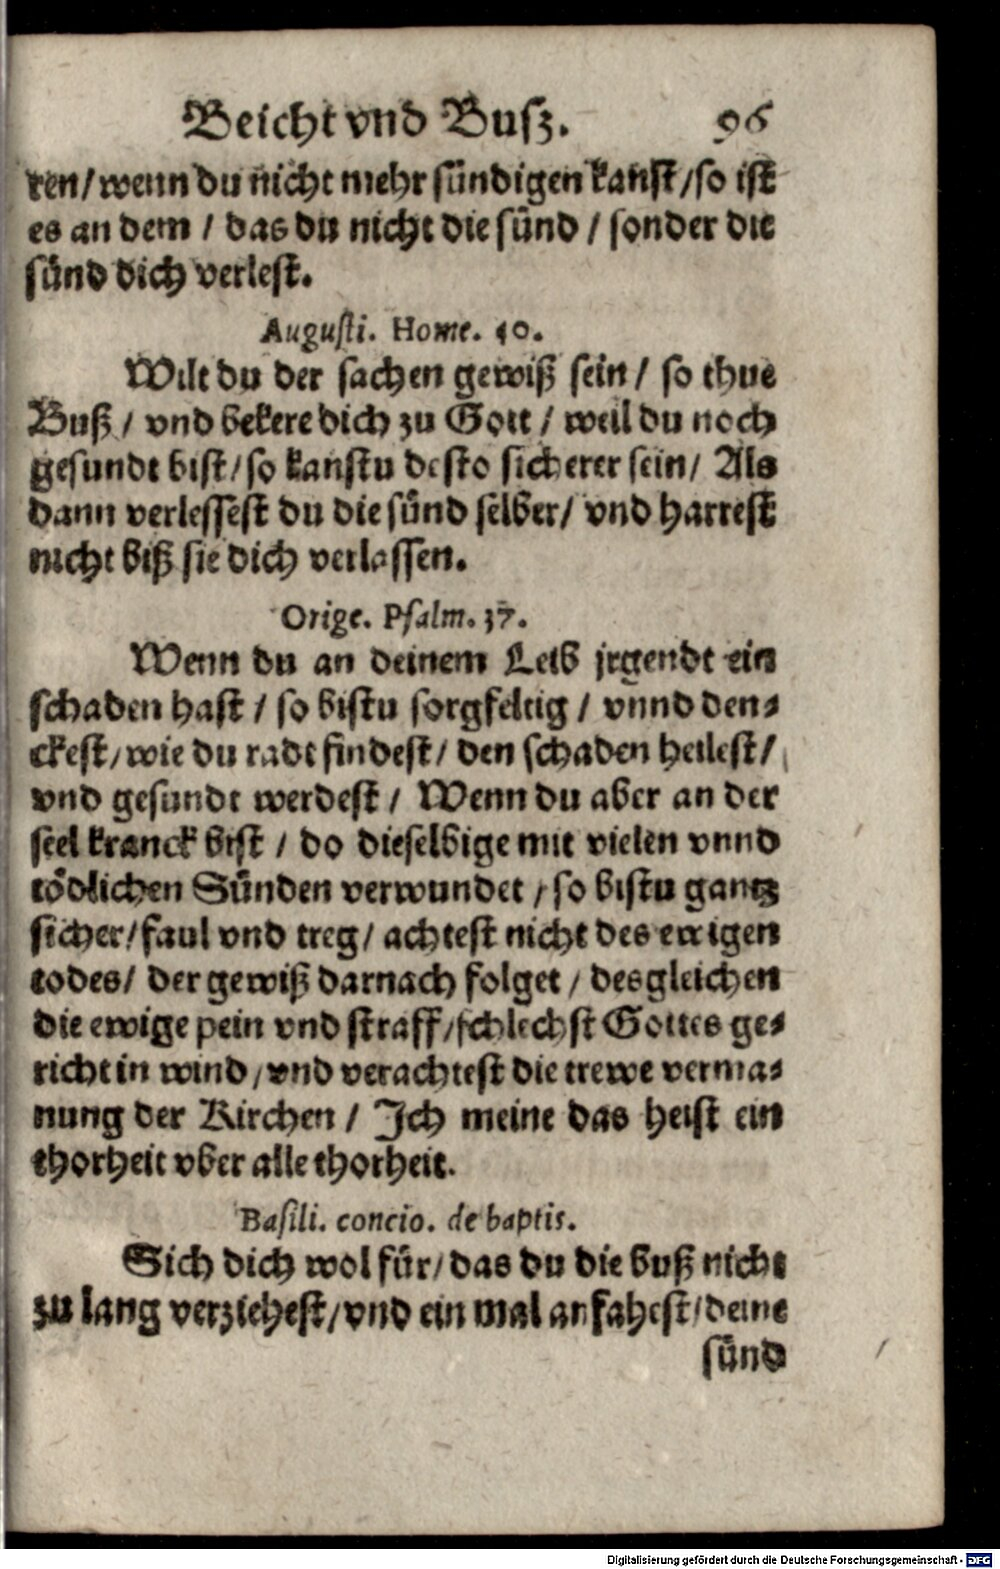 Beicht vnd Busz. 96
ren/wenn du nicht mehr sündigen kanst/so ist
es an dem / das du nicht die sünd / sonder die
sünd dich verlest.
Augusti. Home. 40.
Wilt du der sachen gewiß sein / so thue
Buß / vnd bekere dich zu Gott / weil du noch
gesundt bist/so kanstu desto sicherer sein/ Als
dann verlessest du die sünd selber/ vnd harrest
nicht biß sie dich verlassen.
Orige. Psalm. 37.
Wenn du an deinem Leib jrgendt ein
schaden hast / so bistu sorgfeltig / vnnd den-
ckest/wie du radt findest/ den schaden heilest/
vnd gesundt werdest / Wenn du aber an der
seel kranck bist / do dieselbige mit vielen vnnd
tödlichen Sünden verwundet / so bistu gantz
sicher/faul vnd treg/ achtest nicht des ewigen
todes/ der gewiß darnach folget / desgleichen
die ewige pein vnd straff/schlechst Gottes ge-
richt in wind/vnd verachtest die trewe verma-
nung der Kirchen / Jch meine das heist ein
thorheit vber alle thorheit.
Basili. concio. de baptis.
Sich dich wol für/das du die buß nicht
zu lang verziehest/vnd ein mal anfahest/deine
sünd
Digitalisierung gefördert durch die Deutsche Forschungsgemeinschaft - DFG